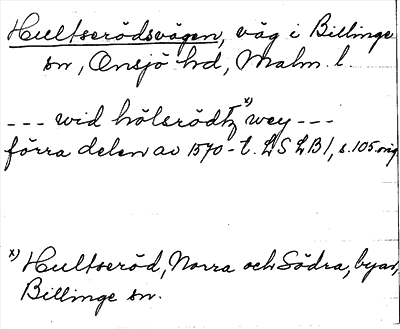 Hultserödsvägen, väg i Billinge
sn, Onsjö hd, Malm. l.
--- wid hölsrödtz x) wey ---
förra delen av 1570-t. LSLB1, s. 105 orig.
x) Hultseröd, Norra och Södra, byar,
Billinge sn.